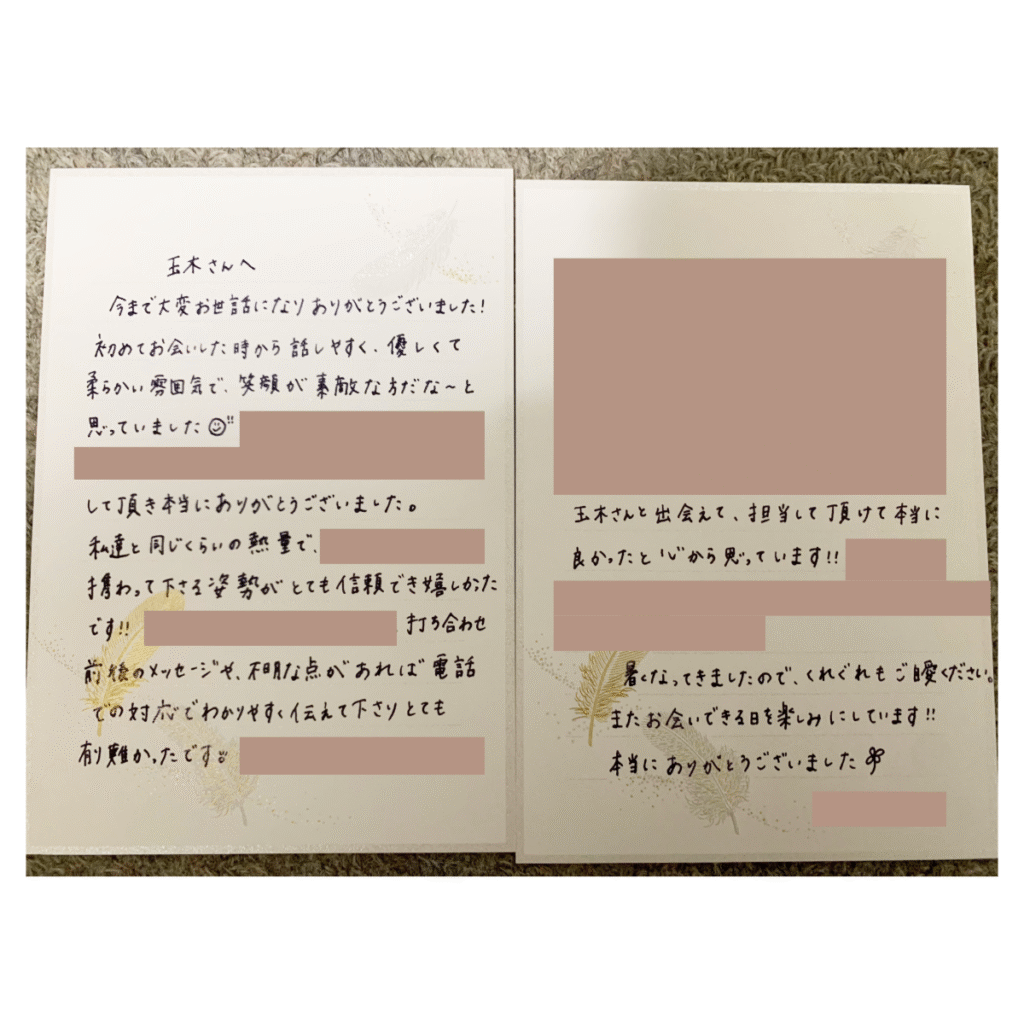 玉木さんへ
今まで大変お世話になりありがとうございました!
初めてお会いした時から話しやすく、優しくて
柔らかい雰囲気で、笑顔が素敵な方だな〜と
思っていました☺!!
して頂き本当にありがとうございました。
私達と同じくらいの熱量で、
携わって下さる姿勢がとても信頼でき嬉しかった
です!! 打ち合わせ
前後のメッセージや、不明な点があれば電話
での対応でわかりやすく伝えて下さりとても
有難かったです
玉木さんと出会えて、担当して頂けて本当に
良かったと心から思っています!!
暑くなってきましたので、くれぐれもご自愛ください。
またお会いできる日を楽しみにしています!!
本当にありがとうございました